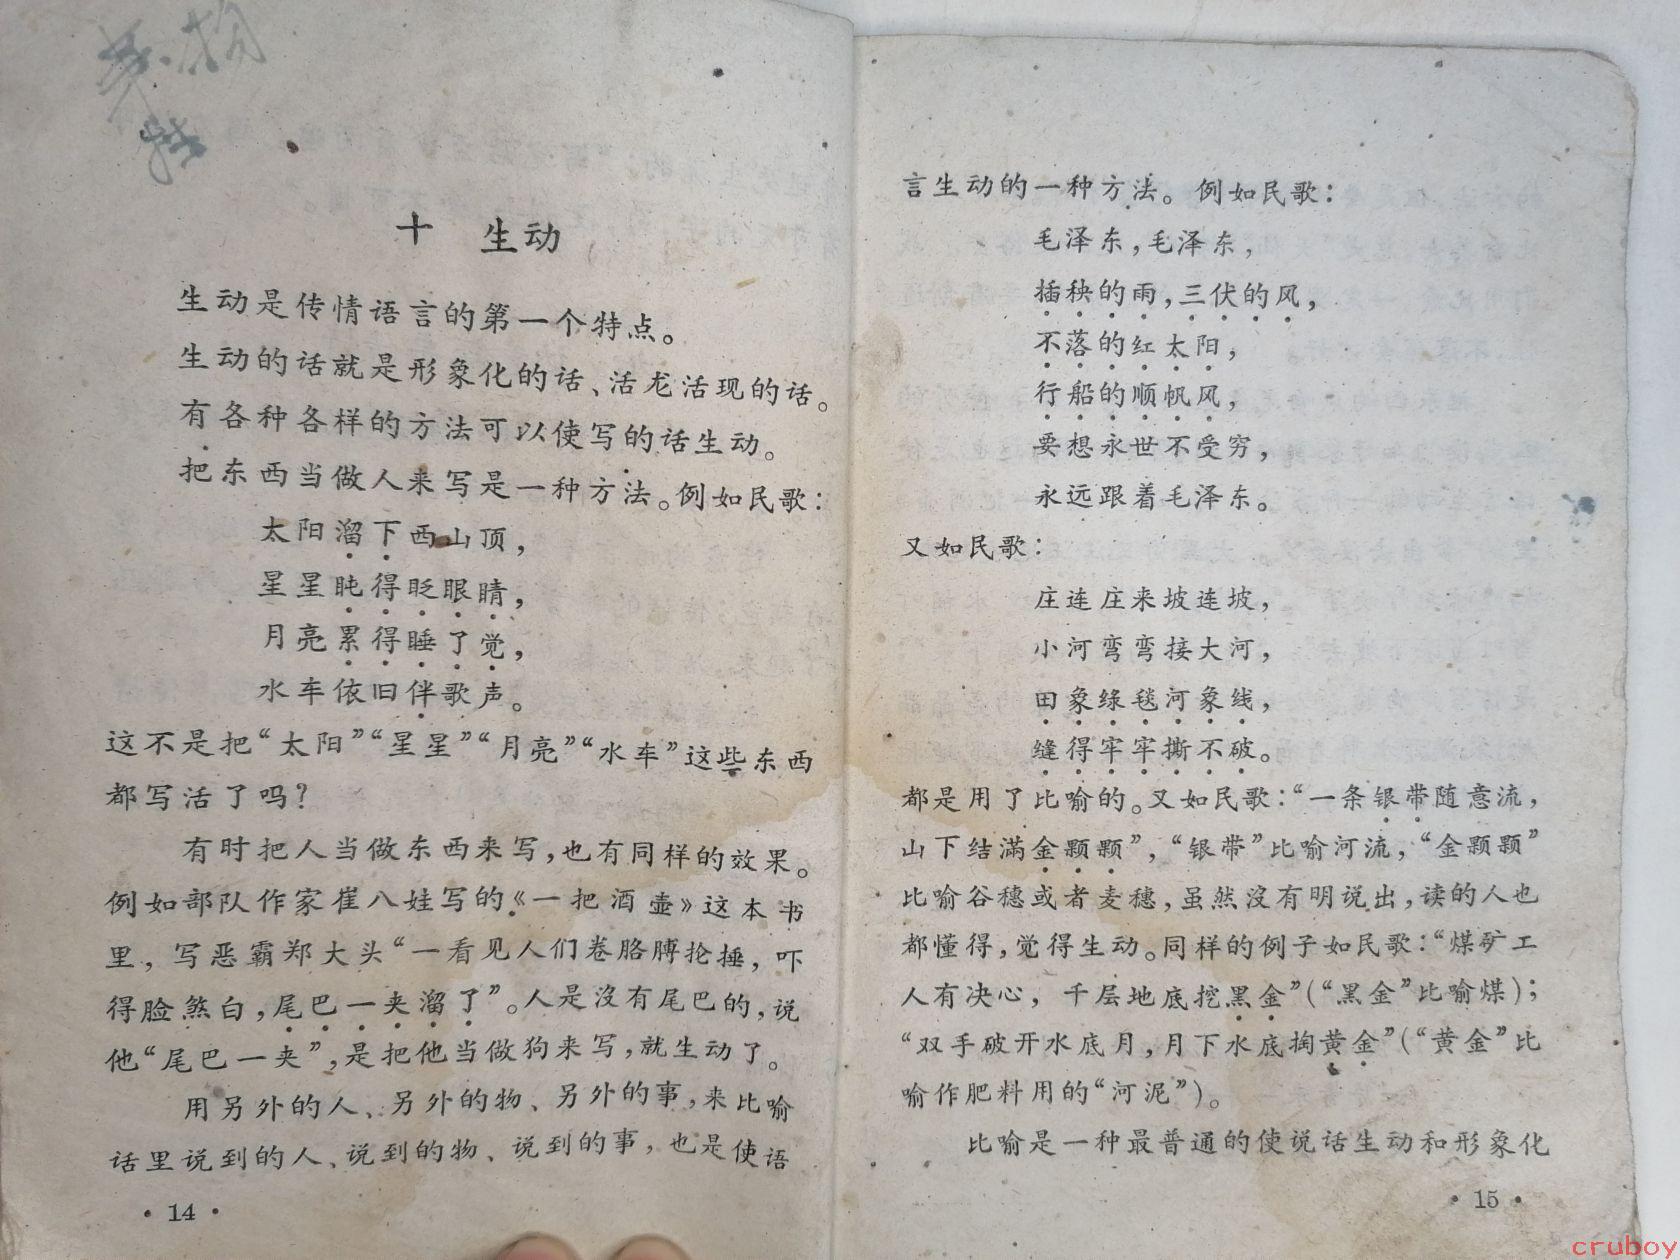 十 生动
生动是传情语言的第一个特点。
生动的话就是形象化的话、活龙活现的话。
有各种各样的方法可以使写的话生动。
把东西当做人来写是一种方法。例如民歌：
太阳溜下西山顶，
星星盹得眨眼睛，
月亮累得睡了觉，
水车依旧伴歌声。
这不是把“太阳”“星星”“月亮”“水车”这些东西
都写活了吗？
有时把人当做东西来写，也有同样的效果。
例如部队作家崔八娃写的《一把酒壶》这本书
里，写恶霸郑大头“一看见人们卷胳膊抡捶，吓
得脸煞白，尾巴一夹溜了”。人是沒有尾巴的，说
他“尾巴一夹”，是把他当做狗来写，就生动了。
用另外的人、另外的物、另外的事，来比喻
话里说到的人、说到的物、说到的事，也是使语
·14·
言生动的一种方法。例如民歌：
毛泽东，毛泽东，
插秧的雨，三伏的风，
不落的红太阳，
行船的顺帆风，
要想永世不受穷，
永远跟着毛泽东。
又如民歌：
庄连庄来坡连坡，
小河弯弯接大河，
田象绿毯河象线，
缝得牢牢撕不破。
都是用了比喻的。又如民歌：“一条银带随意流，
山下结满金颗颗”，“银带”比喻河流，“金颗颗”
比喻谷穗或者麦穗，虽然沒有明说出，读的人也
都懂得，觉得生动。同样的例子如民歌：“煤矿工
人有决心，千层地底挖黑金”（“黑金”比喻煤）；
“双手破开水底月，月下水底掏黄金”（“黄金”比
喻作肥料用的“河泥”）。
比喻是一种最普通的使说话生动和形象化
·15·
cruboy